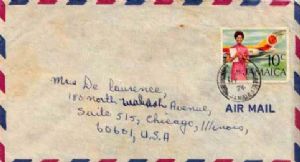 10c
JAMAICA
Mrs De Laurence,
180 North Wabash Avenue,
AIR MAIL
Suite 515, Chicago, Illinois,
60601, U.S.A